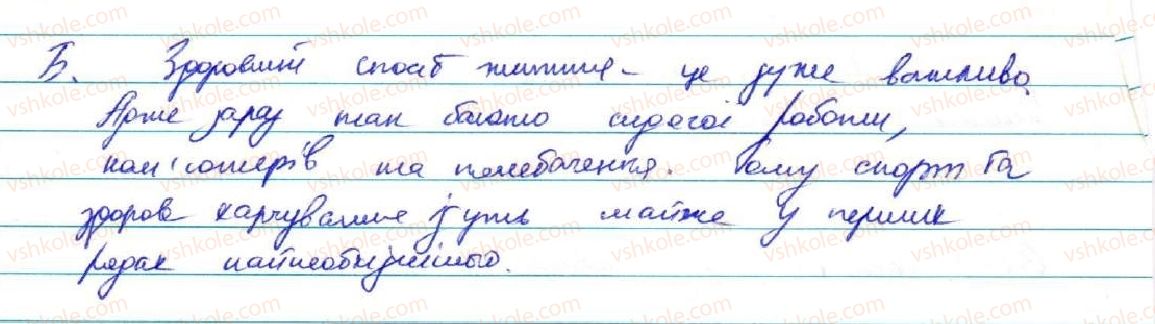 Б. Здоровий спосіб життя - це дуже важливо.
Адже зараз так багато сидячої роботи,
комп'ютерів та телебачення. Тому спорт та
здорове харчування йдуть майже у перших
рядах найнеобхіднішого.